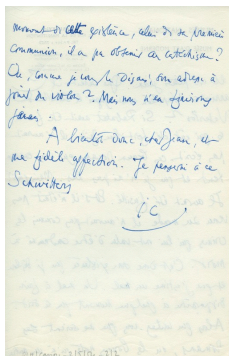 moment de cette existence, celui de sa première
communion, il a pu obtenir au catéchisme?
Ou, comme je vous le disais, son adresse à
jouer du violon? Mais nous n'en finirions
jamais.
A bientôt donc, cher Jean, et
ma fidèle affection. Je repense à ce
Schwitters